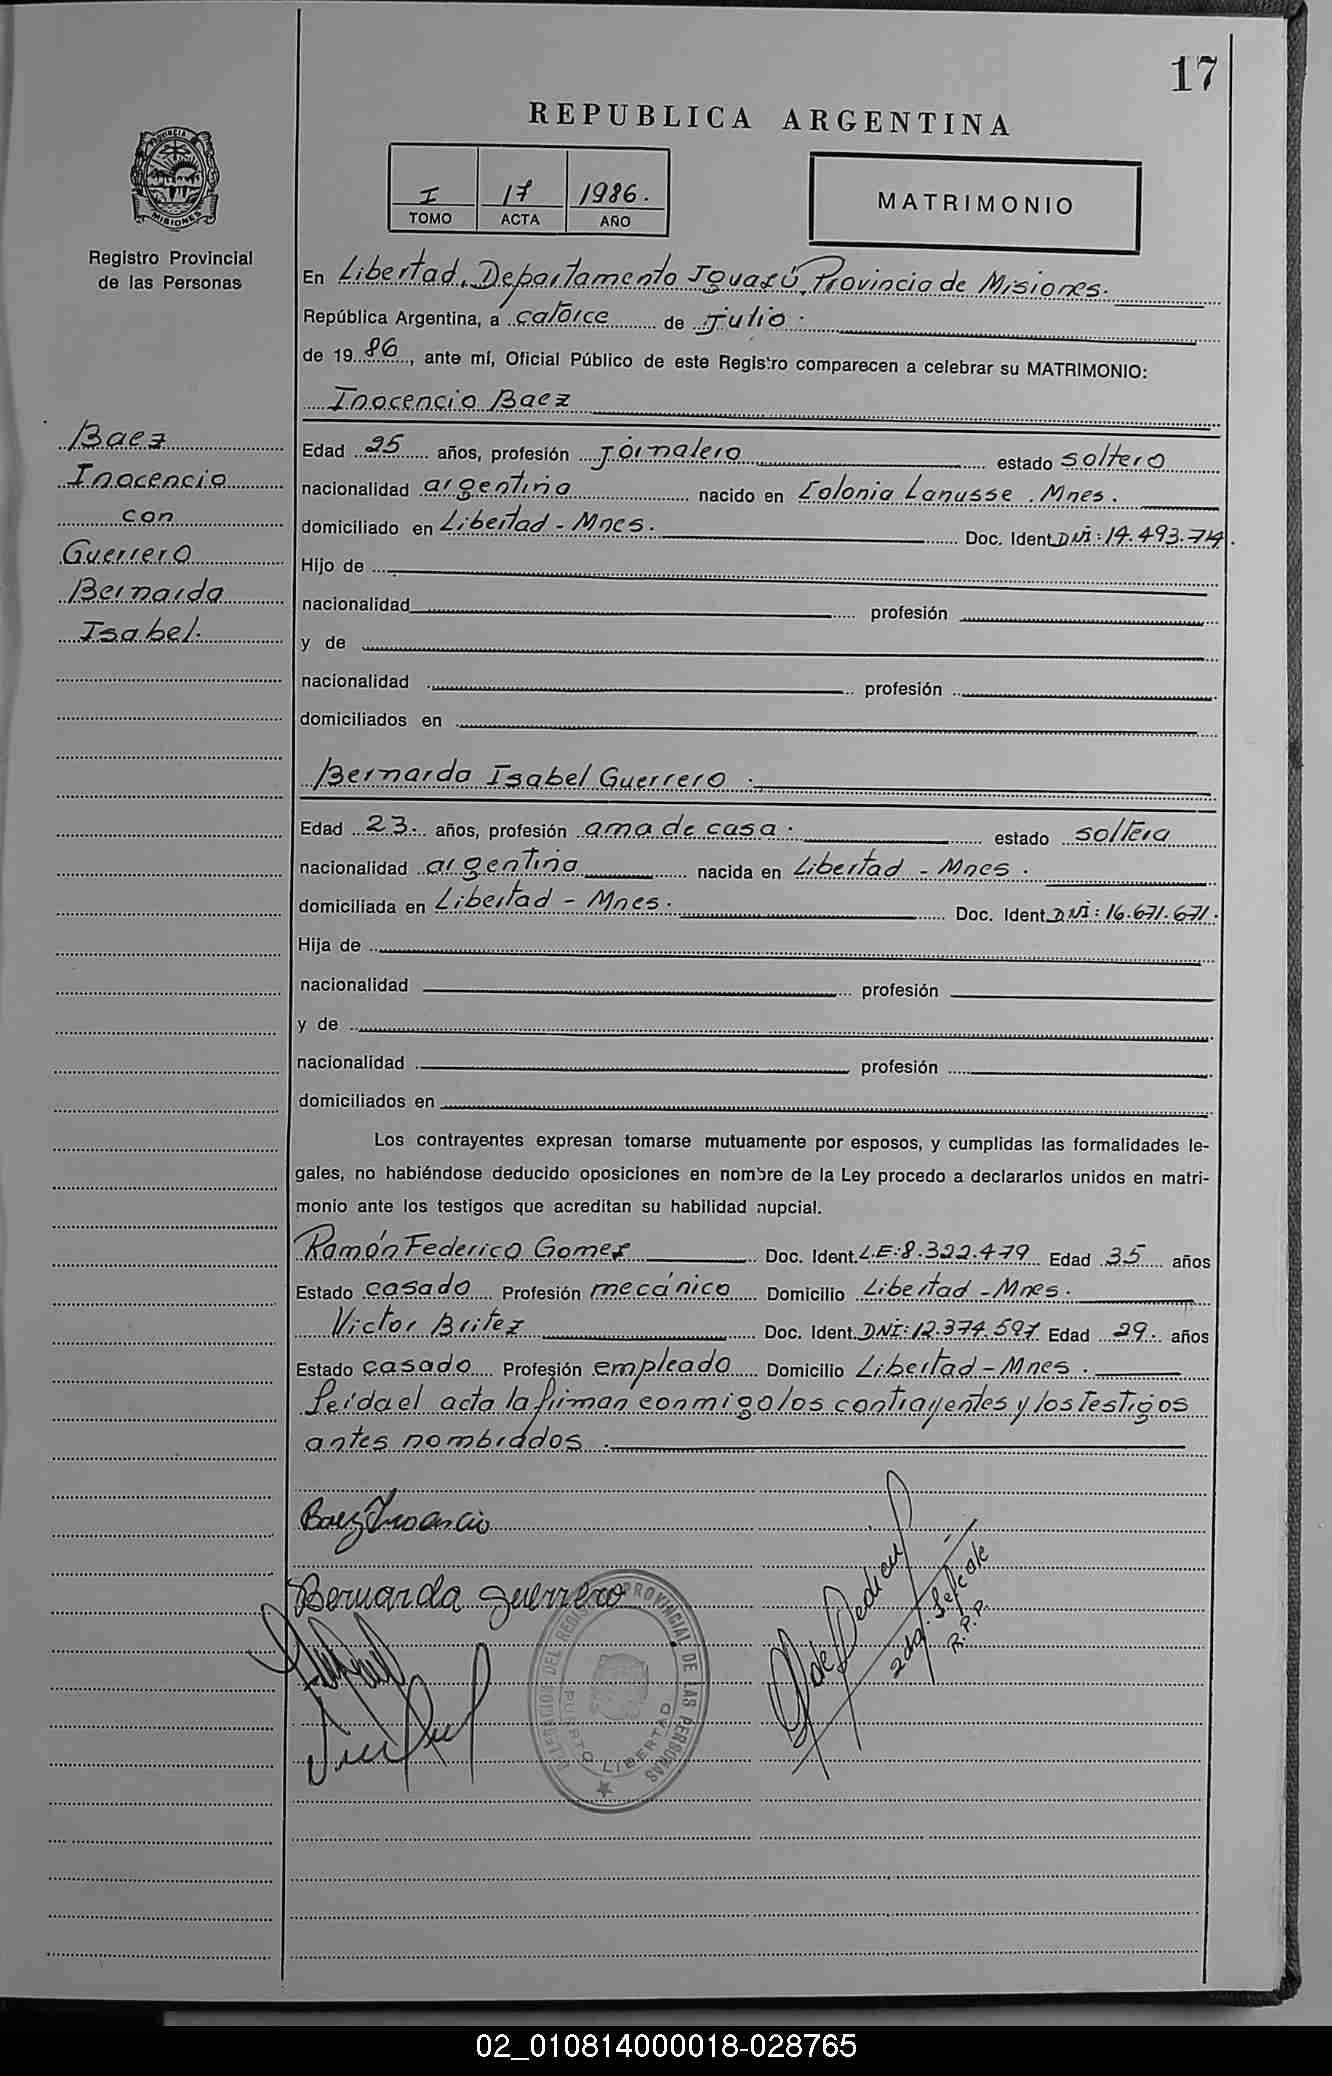 17
REPUBLICA ARGENTINA
I 17 1986.
TOMO ACTA AÑO
MATRIMONIO
PROVINCIA
MISIONES
Registro Provincial
de las Personas
En Libertad, Departamento Iguazú, Provincia de Misiones.
República Argentina, a catorce de julio.
de 19 86, ante mí, Oficial Público de este Registro comparecen a celebrar su MATRIMONIO:
Inocencio Baez
Baez
Inocencio
con
Guerrero
Bernarda
Isabel.
Edad 25 años, profesión jornalero estado soltero
nacionalidad argentina nacido en Colonia Lanusse. Mnes.
domiciliado en Libertad - Mnes. Doc. Ident. DNI: 14.493.714.
Hijo de
nacionalidad profesión
y de
nacionalidad profesión
domiciliados en
Bernarda Isabel Guerrero.
Edad 23. años, profesión ama de casa. estado soltera
nacionalidad argentina nacida en Libertad - Mnes.
domiciliada en Libertad - Mnes. Doc. Ident. DNI: 16.671.671.
Hija de
nacionalidad profesión
y de
nacionalidad profesión
domiciliados en
Los contrayentes expresan tomarse mutuamente por esposos, y cumplidas las formalidades le-
gales, no habiéndose deducido oposiciones en nombre de la Ley procedo a declararlos unidos en matri-
monio ante los testigos que acreditan su habilidad nupcial.
Ramón Federico Gomez Doc. Ident. L.E: 8.322.479 Edad 35 años
Estado casado Profesión mecánico Domicilio Libertad - Mnes.
Victor Britez Doc. Ident. DNI: 12.374.597 Edad 29. años
Estado casado Profesión empleado Domicilio Libertad - Mnes.
Leída el acta la firman conmigo los contrayentes y los testigos
antes nombrados.
Baez Inocencio
Bernarda Guerrero
DELEGACION DEL REGISTRO PROVINCIAL DE LAS PERSONAS
PUERTO LIBERTAD
R.P.P.
02_010814000018-028765